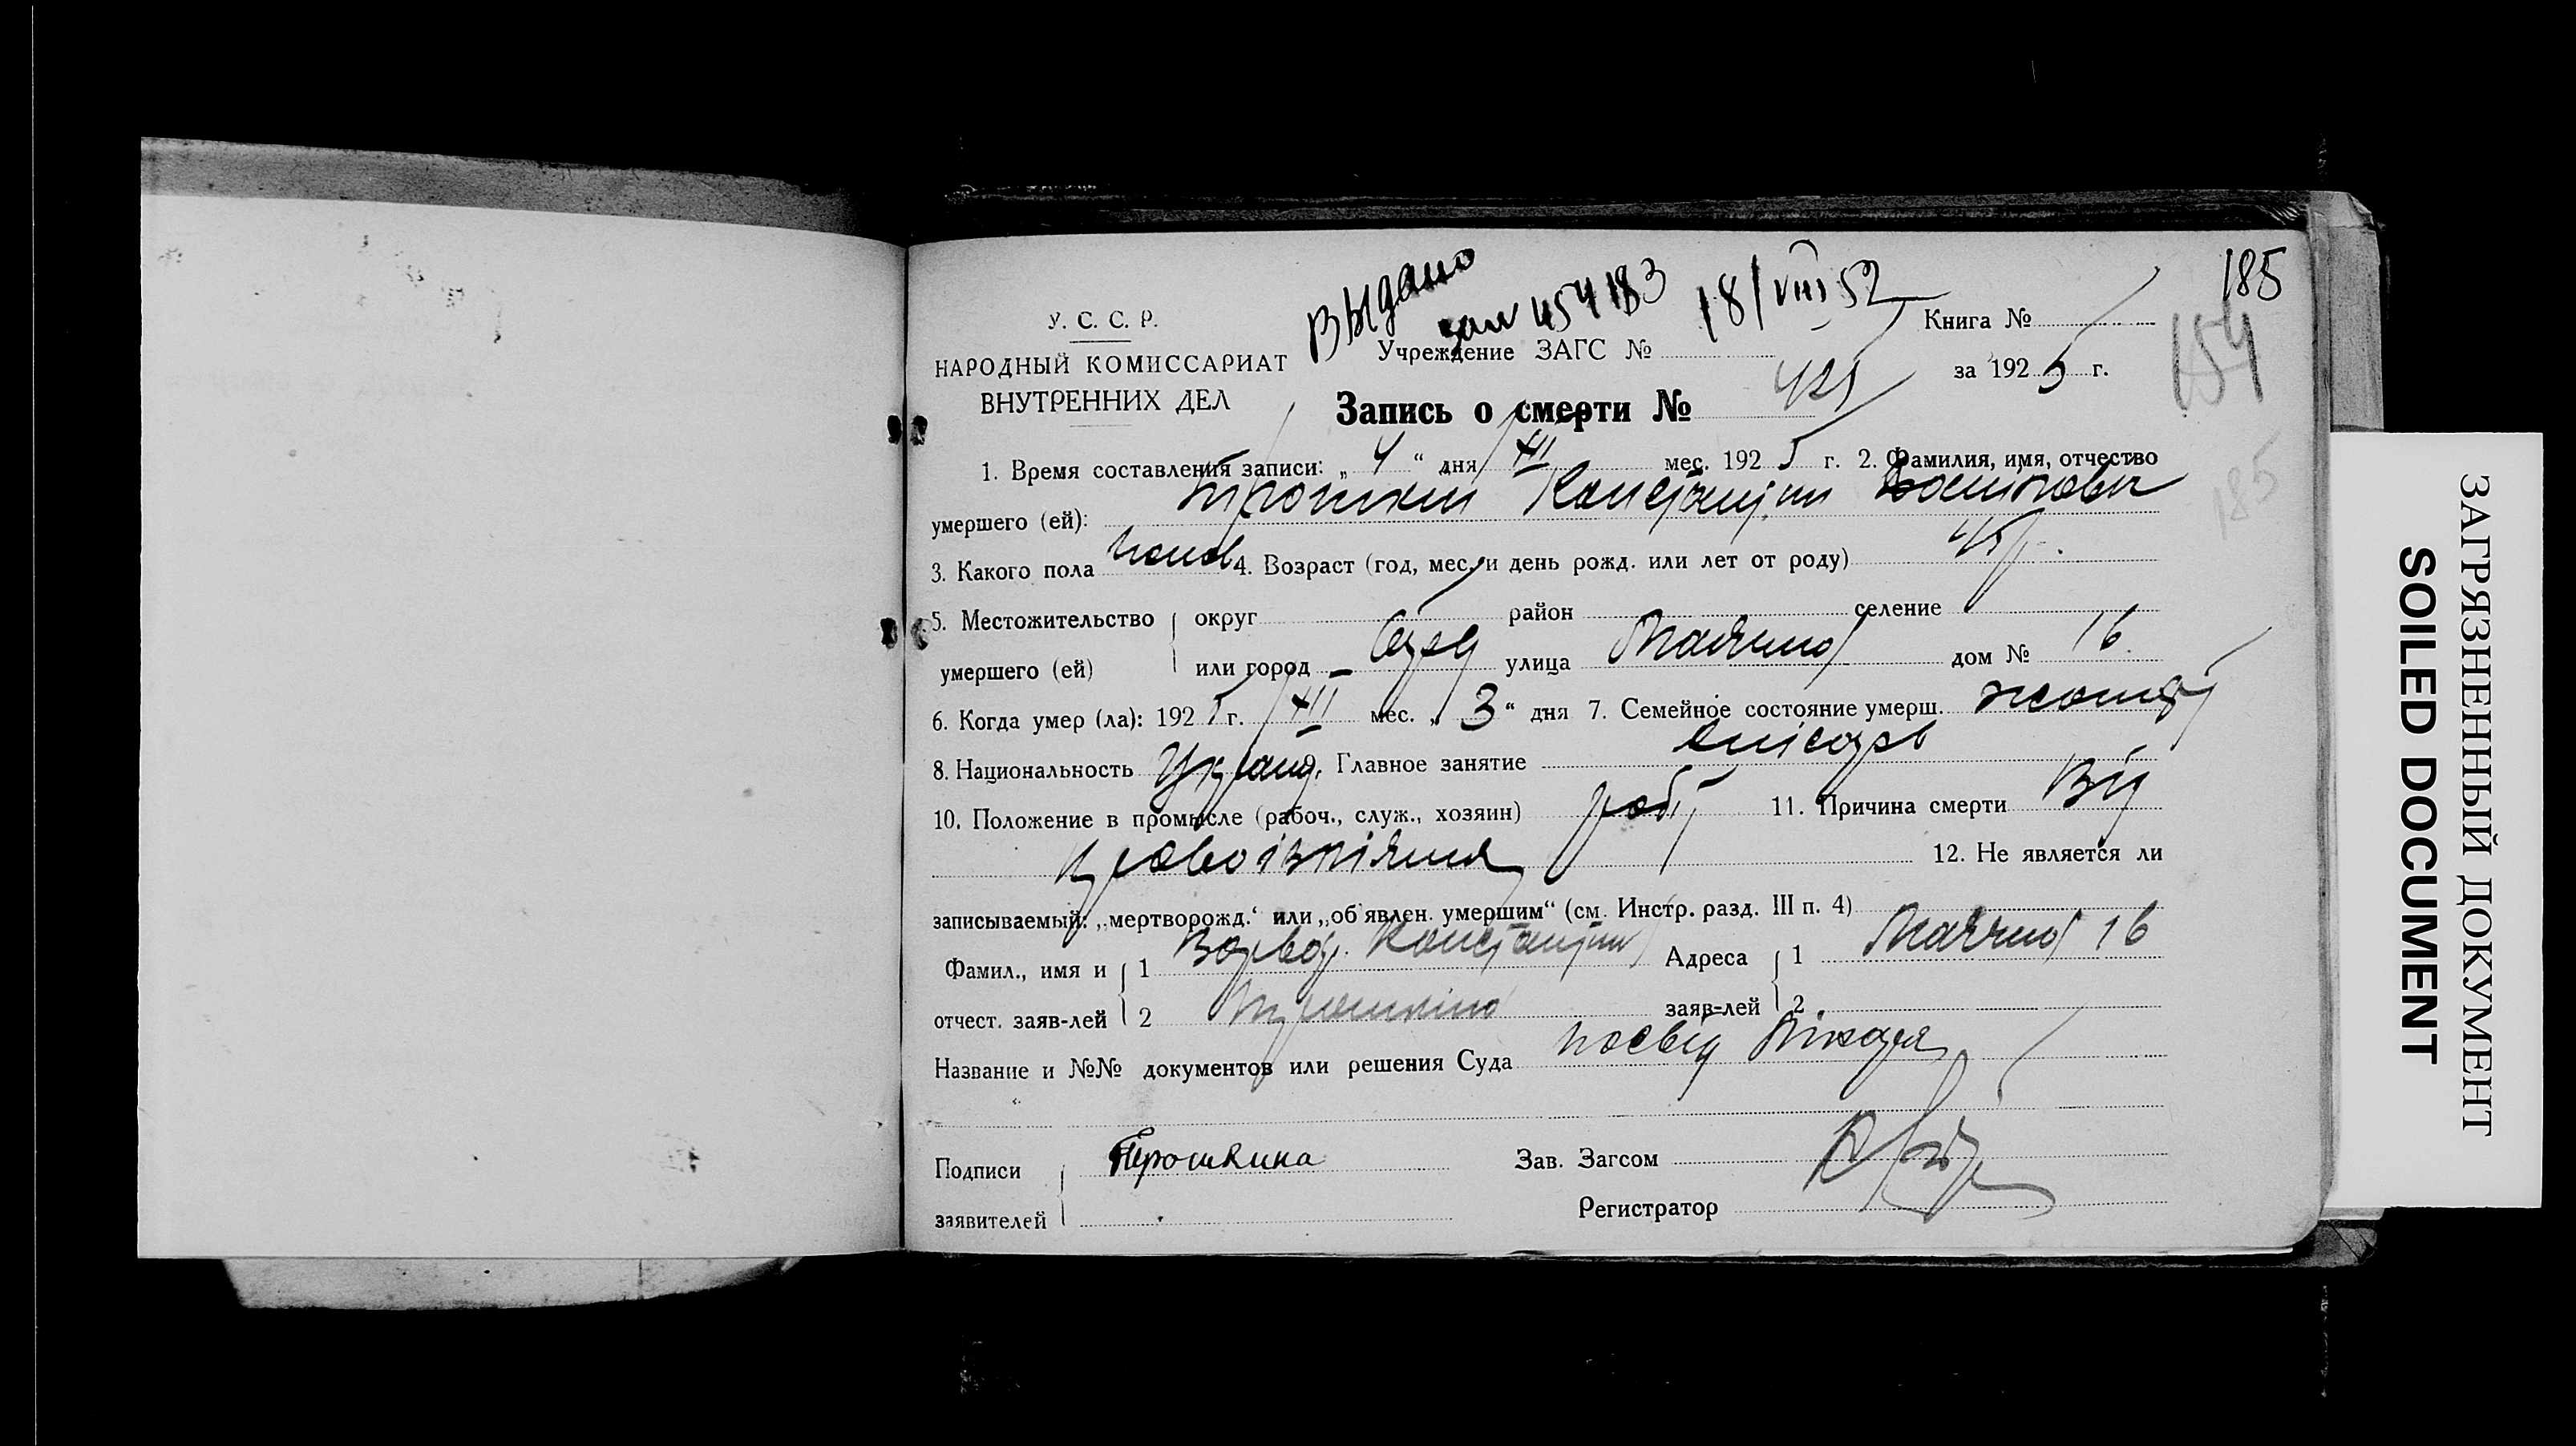 185
Выдано
зал 454183 18/VIII 52
У. С. С. Р.
НАРОДНЫЙ КОМИССАРИАТ
ВНУТРЕННИХ ДЕЛ
Учреждение ЗАГС №
Книга №
за 1925 г.
154
185
Запись о смерти № 425
1. Время составления записи: „ 4 “ дня XII мес. 1925 г. 2. Фамилия, имя, отчество
умершего (ей): Трошкин Константин
3. Какого пола чолов 4. Возраст (год, мес. и день рожд. или лет от роду) 45 р.
5. Местожительство округ район селение
умершего (ей) или город улица дом № 16
6. Когда умер (ла): 1925 г. XII мес. „ 3 “ дня 7. Семейное состояние умерш.
8. Национальность Україн. Главное занятие слісарь
10. Положение в промысле (рабоч., служ., хозяин) робіт 11. Причина смерти Від
12. Не является ли
записываемый: „мертворожд.“ или „об'явлен. умершим“ (см. Инстр. разд. III п. 4)
Фамил., имя и 1 Адреса 1 16
отчест. заяв-лей 2 заяв-лей 2
Название и №№ документов или решения Суда посвід лікаря
Подписи Трошкина Зав. Загсом
заявителей Регистратор
ЗАГРЯЗНЕННЫЙ ДОКУМЕНТ
SOILED DOCUMENT